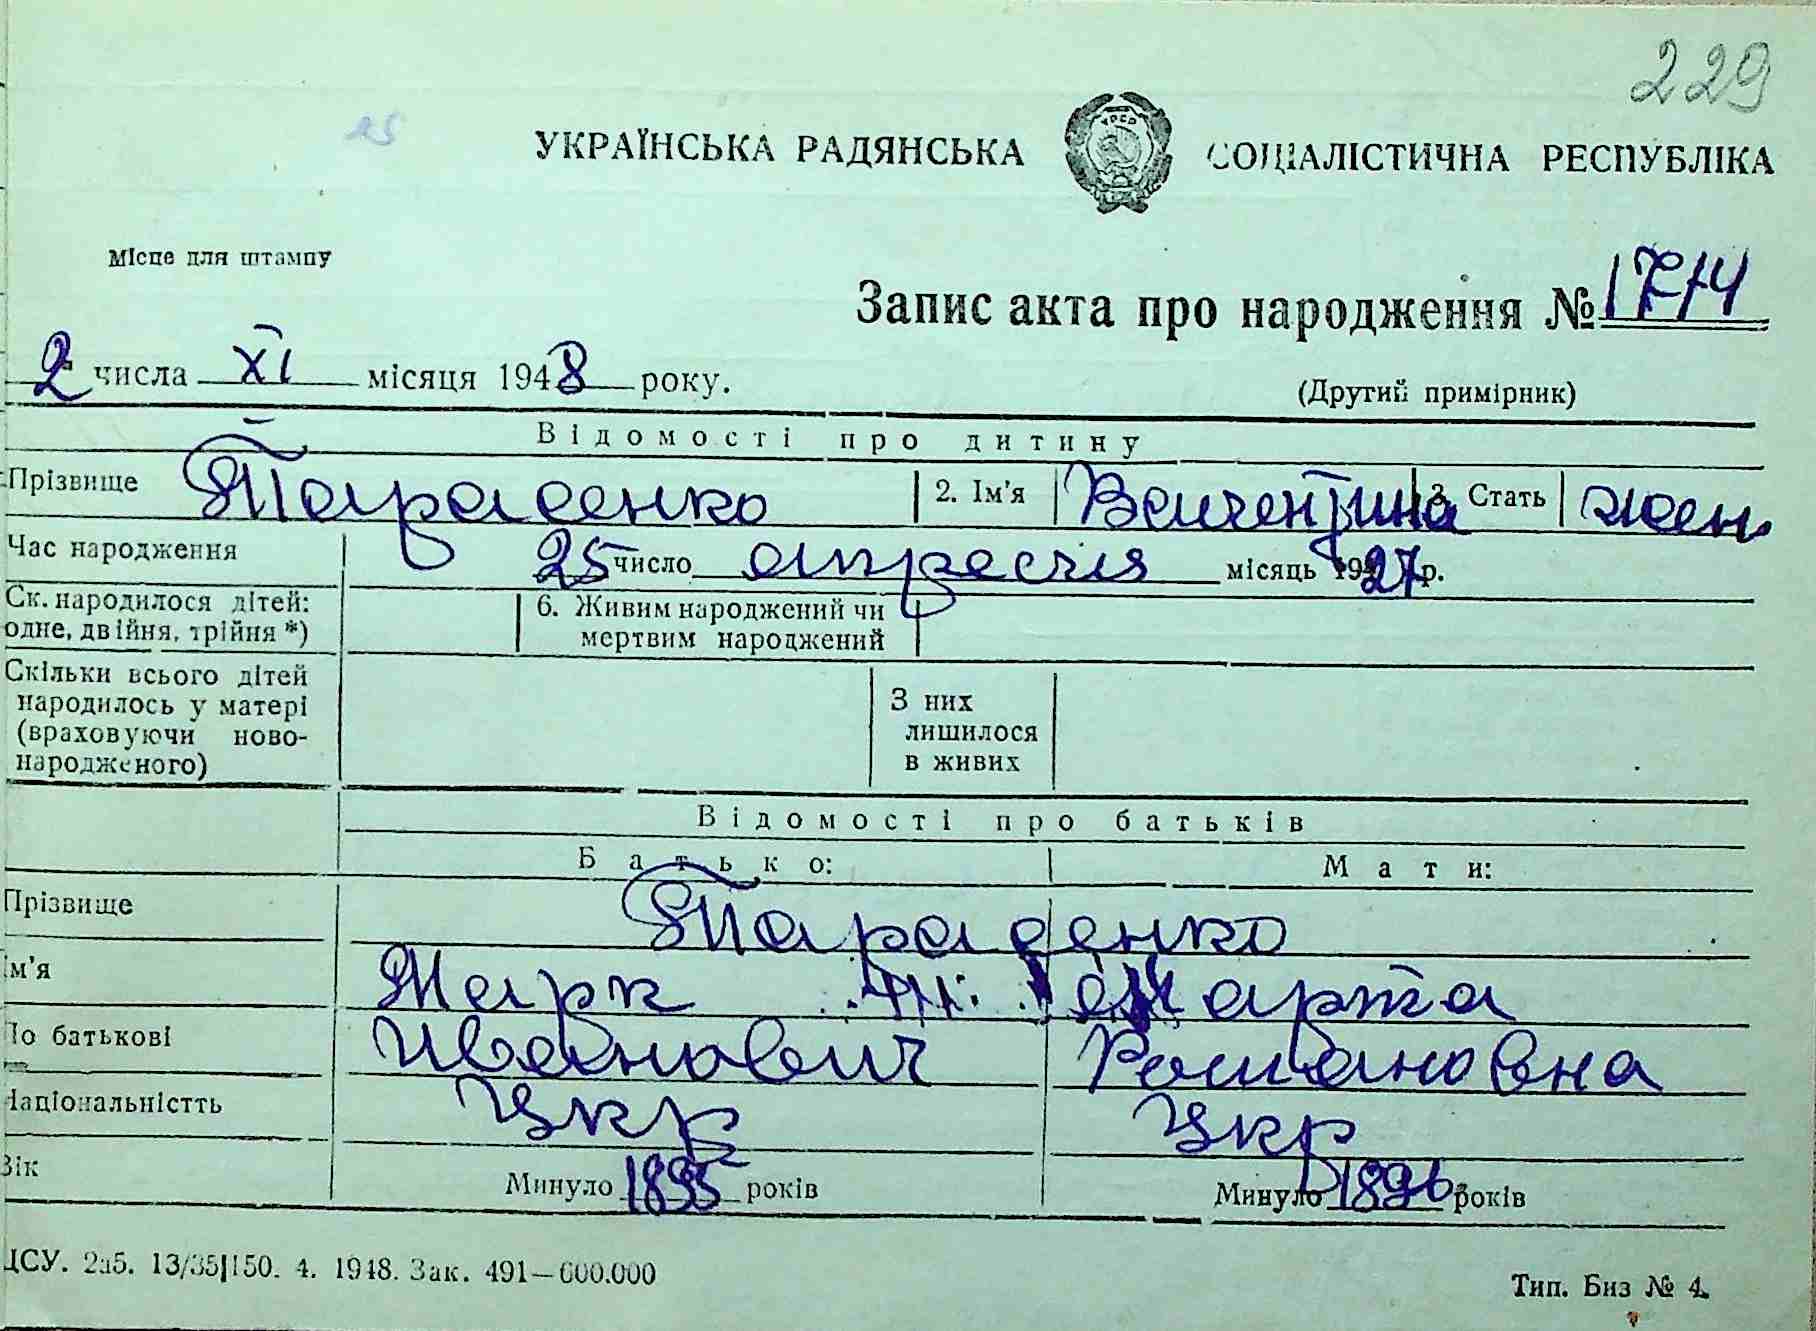 229
УКРАЇНСЬКА РАДЯНСЬКА СОЦІАЛІСТИЧНА РЕСПУБЛІКА
Місце для штампу
Запис акта про народження № 1714
2 числа XI місяця 1948 року.
(Другий примірник)
Відомості про дитину
Прізвище Тарасенко 2. Ім'я Валентина 3. Стать жен
Час народження 25 число апреля місяць 1927 р.
Ск. народилося дітей: одне, двійня, трійня *)
6. Живим народжений чи мертвим народжений
Скільки всього дітей народилось у матері (враховуючи новонародженого)
З них лишилося в живих
Відомості про батьків
Батько: Мати:
Прізвище Тарасенко
Ім'я Марк Марта
По батькові Иванович Романовна
Національністть Укр Укр
Вік Минуло 1895 років Минуло 1896 років
ЦСУ. 2а5. 13/35|150. 4. 1948. Зак. 491—600.000
Тип. Биз № 4.